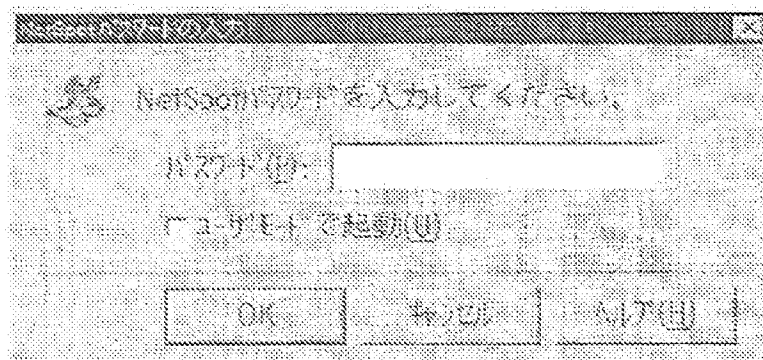 NetSpotﾊﾟｽﾜｰﾄﾞの入力
NetSpotﾊﾟｽﾜｰﾄﾞを入力してください。
ﾊﾟｽﾜｰﾄﾞ(P):
ﾕｰｻﾞﾓｰﾄﾞで起動(U)
OK
ｷｬﾝｾﾙ
ﾍﾙﾌﾟ(H)